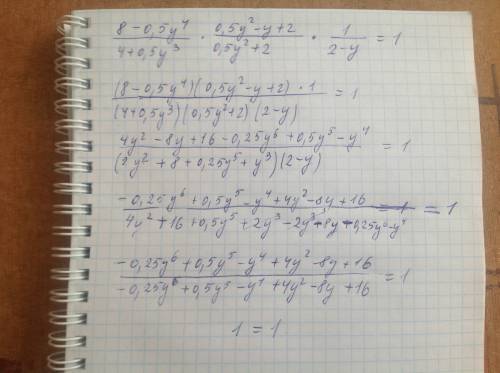 (8-0,5y⁴)/(4+0,5y³) · (0,5y²-y+2)/(0,5y²+2) · 1/(2-y) = 1
((8-0,5y⁴)(0,5y²-y+2)·1)/((4+0,5y³)(0,5y²+2)(2-y)) = 1
(4y²-8y+16-0,25y⁶+0,5y⁵-y⁴)/((2y²+8+0,25y⁵+y³)(2-y)) = 1
(-0,25y⁶+0,5y⁵-y⁴+4y²-8y+16)/(4y²+16+0,5y⁵+2y³-2y³-8y-0,25y⁶-y⁴) = 1
(-0,25y⁶+0,5y⁵-y⁴+4y²-8y+16)/(-0,25y⁶+0,5y⁵-y⁴+4y²-8y+16) = 1
1 = 1